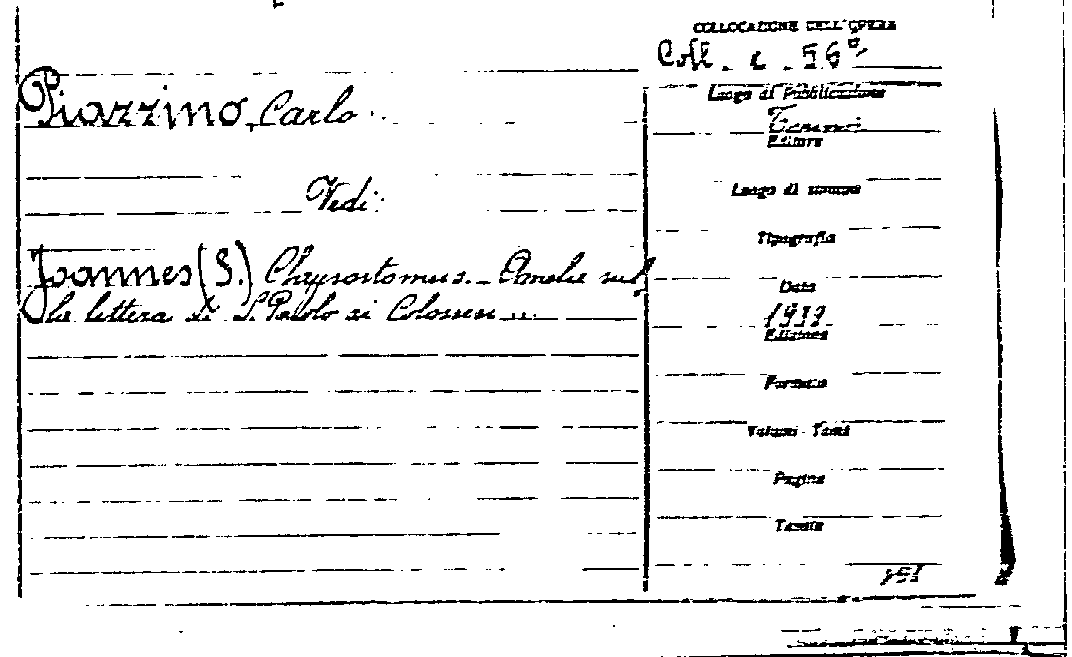 COLLOCAZIONE DELL'OPERA
Coll. c. 56
Piazzino, Carlo
Luogo di Pubblicazione
Editore
Vedi:
Luogo di stampa
Tipografia
Joannes (S.) Chrysostomus. - Omelie sul-
la lettera di S. Paolo ai Colossesi ...
Data
1939
Edizione
Formato
Volumi - Tomi
Pagine
Tavole